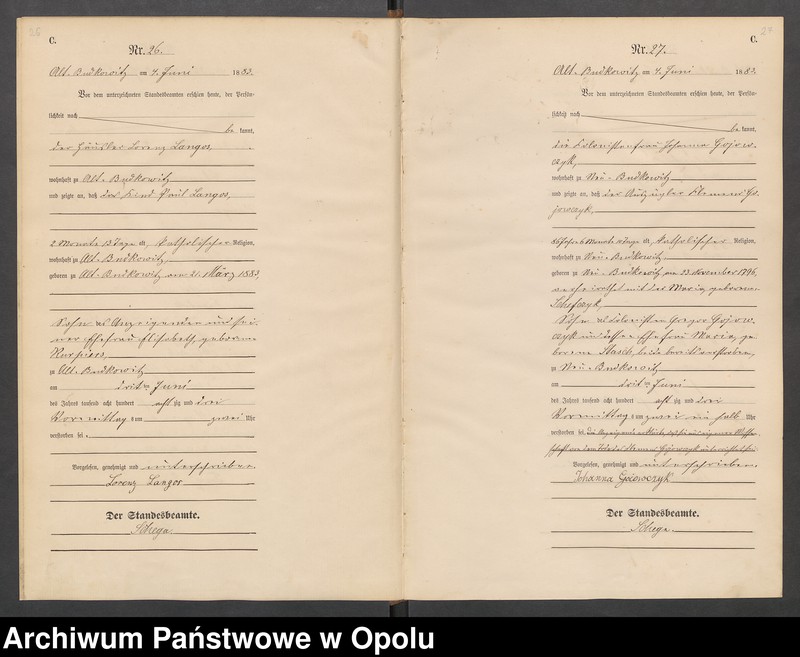 26
C.
Nr. 26.
Alt-Budkowitz am 4. Juni 1883.
Vor dem unterzeichneten Standesbeamten erschien heute, der Persön-
lichkeit nach
be kannt,
der Häusler Lorenz Langos,
wohnhaft zu Alt-Budkowitz
und zeigte an, daß das Kind Paul Langos,
2 Monate 13 Tage alt, katholischer Religion,
wohnhaft zu Alt-Budkowitz
geboren zu Alt-Budkowitz am 21. März 1883,
Sohn des Anzeigenden und sei-
ner Ehefrau Elisabeth, geborene
Kurpiers,
zu Alt-Budkowitz
am dritten Juni
des Jahres tausend acht hundert achtzig und drei
Vormittag s um zwei Uhr
verstorben sei.
Vorgelesen, genehmigt und unterschrieben
Lorenz Langos
Der Standesbeamte.
27
C.
Nr. 27.
Alt-Budkowitz am 4. Juni 1883.
Vor dem unterzeichneten Standesbeamten erschien heute, der Persön-
lichkeit nach
be kannt,
die Kolonistenfrau Johanna Gojow-
czyk,
wohnhaft zu Neu-Budkowitz
und zeigte an, daß der Auszügler Klemens Go-
jowczyk,
86 Jahre 6 Monate alt, katholischer Religion,
wohnhaft zu Neu-Budkowitz
geboren zu Neu-Budkowitz am 23. November 1796,
verheirathet mit der Maria, geborene
Sohn des Kolonisten Gregor Gojow-
czyk und dessen Ehefrau Maria, ge-
borene Stasik, beide bereits verstorben,
zu Neu-Budkowitz
am dritten Juni
des Jahres tausend acht hundert achtzig und drei
Vormittag s um zwei ein halb Uhr
verstorben sei. Die Anzeigende erklärte, daß sie aus eigener Wissen-
schaft von dem Tode des Klemens Gojowczyk unterrichtet sei.
Vorgelesen, genehmigt und unterschrieben
Johanna Gojowczyk
Der Standesbeamte.
Archiwum Państwowe w Opolu